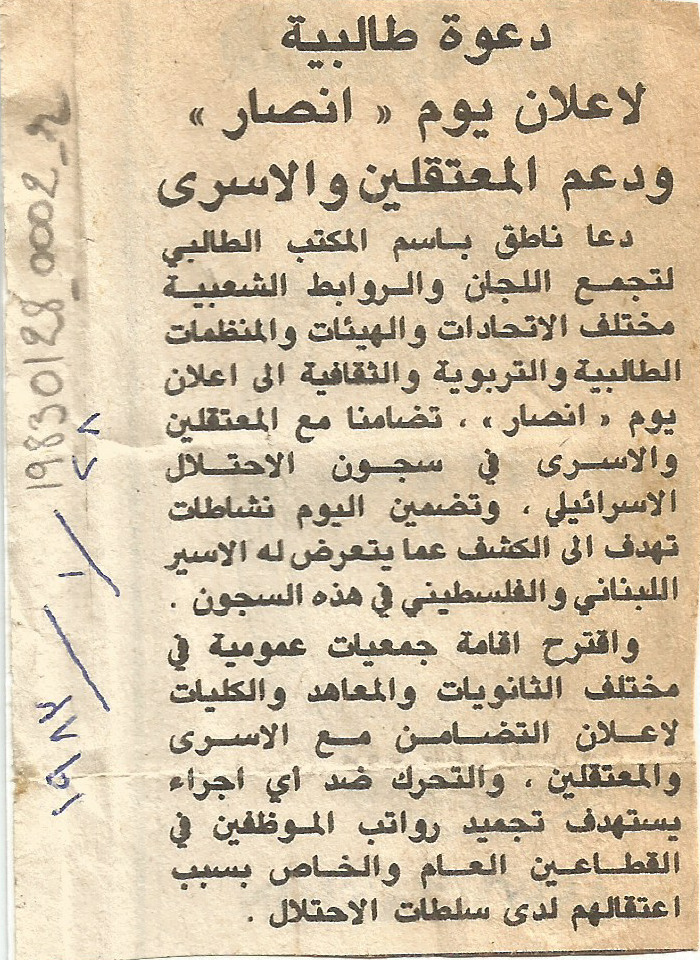 دعوة طالبية
لاعلان يوم « انصار »
ودعم المعتقلين والاسرى
دعا ناطق باسم المكتب الطالبي
لتجمع اللجان والروابط الشعبية
مختلف الاتحادات والهيئات والمنظمات
الطالبية والتربوية والثقافية الى اعلان
يوم « انصار » ، تضامنا مع المعتقلين
والاسرى في سجون الاحتلال
الاسرائيلي ، وتضمين اليوم نشاطات
تهدف الى الكشف عما يتعرض له الاسير
اللبناني والفلسطيني في هذه السجون .
واقترح اقامة جمعيات عمومية في
مختلف الثانويات والمعاهد والكليات
لاعلان التضامن مع الاسرى
والمعتقلين ، والتحرك ضد اي اجراء
يستهدف تجميد رواتب الموظفين في
القطاعين العام والخاص بسبب
اعتقالهم لدى سلطات الاحتلال .
19830128_0002_r
٢٨ / ١ / ١٩٨٣